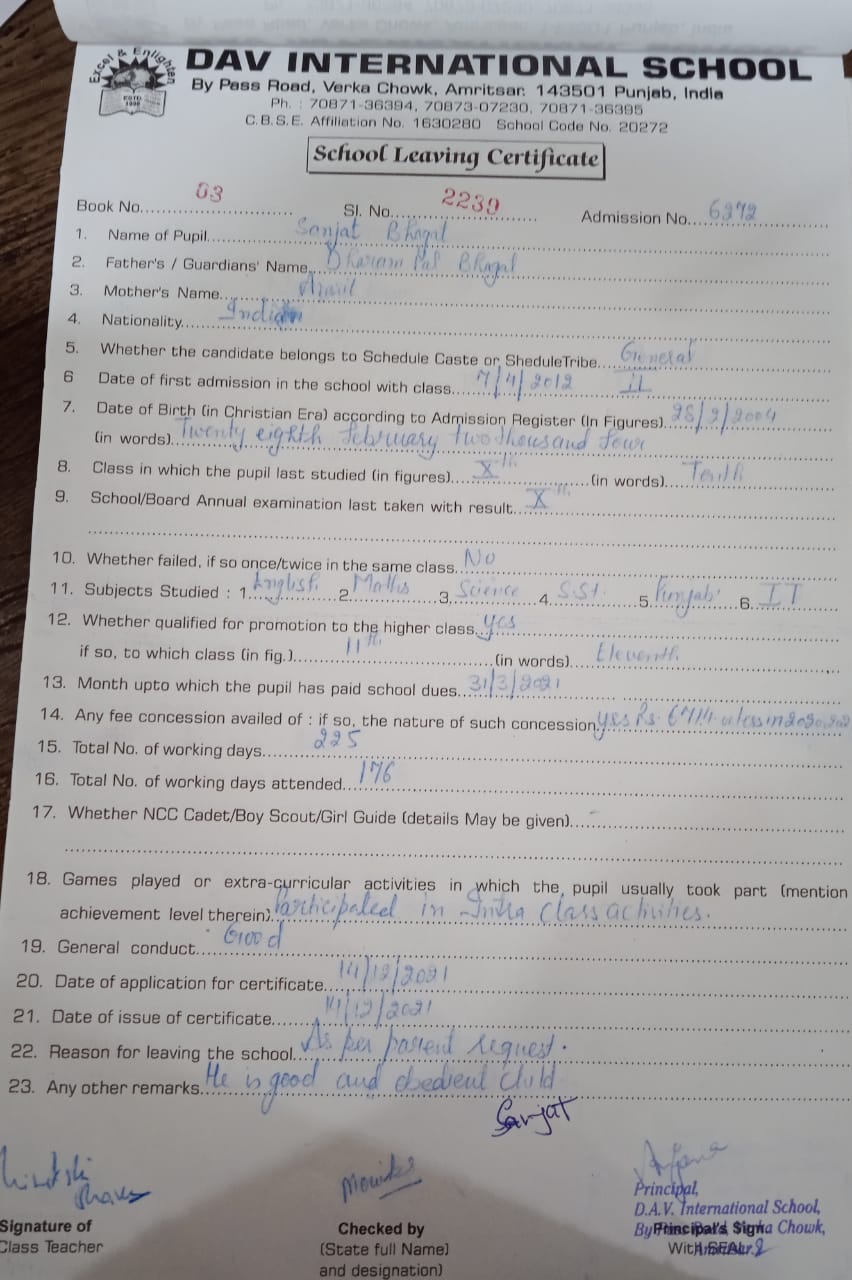 Excel & Enlighten
ESTD.
DAV INTERNATIONAL SCHOOL
By Pass Road, Verka Chowk, Amritsar. 143501 Punjab, India
Ph. : 70871-36394, 70873-07230, 70871-36395
C.B.S.E. Affiliation No. 1630280 School Code No. 20272
School Leaving Certificate
Book No. 03 Sl. No. 2239 Admission No. 6272
1. Name of Pupil Sanjat Bhagal
2. Father's / Guardians' Name Dharam Pal Bhagal
3. Mother's Name
4. Nationality Indian
5. Whether the candidate belongs to Schedule Caste or SheduleTribe General
6 Date of first admission in the school with class 7/4/2012 II
7. Date of Birth (in Christian Era) according to Admission Register (In Figures) 28/2/2004
(in words) Twenty eighth february two thousand four
8. Class in which the pupil last studied (in figures) Xth (in words) Tenth
9. School/Board Annual examination last taken with result Xth
10. Whether failed, if so once/twice in the same class No
11. Subjects Studied : 1. English 2. Maths 3. Science 4. S.St. 5. Punjabi 6. IT
12. Whether qualified for promotion to the higher class yes
if so, to which class (in fig.) 11th (in words) Eleventh
13. Month upto which the pupil has paid school dues 31/3/2021
14. Any fee concession availed of : if so, the nature of such concession yes Rs. 6714 in 2020
15. Total No. of working days 225
16. Total No. of working days attended 176
17. Whether NCC Cadet/Boy Scout/Girl Guide (details May be given) -
18. Games played or extra-curricular activities in which the pupil usually took part (mention
achievement level therein) Participated in Intra Class activities.
19. General conduct Good
20. Date of application for certificate 14/12/2021
21. Date of issue of certificate 14/12/2021
22. Reason for leaving the school As per parent request.
23. Any other remarks He is good and obedient child
Sanjat
Principal,
D.A.V. International School,
Signature of Class Teacher
Checked by
(State full Name)
and designation)
Principal's Sign
With SEAL